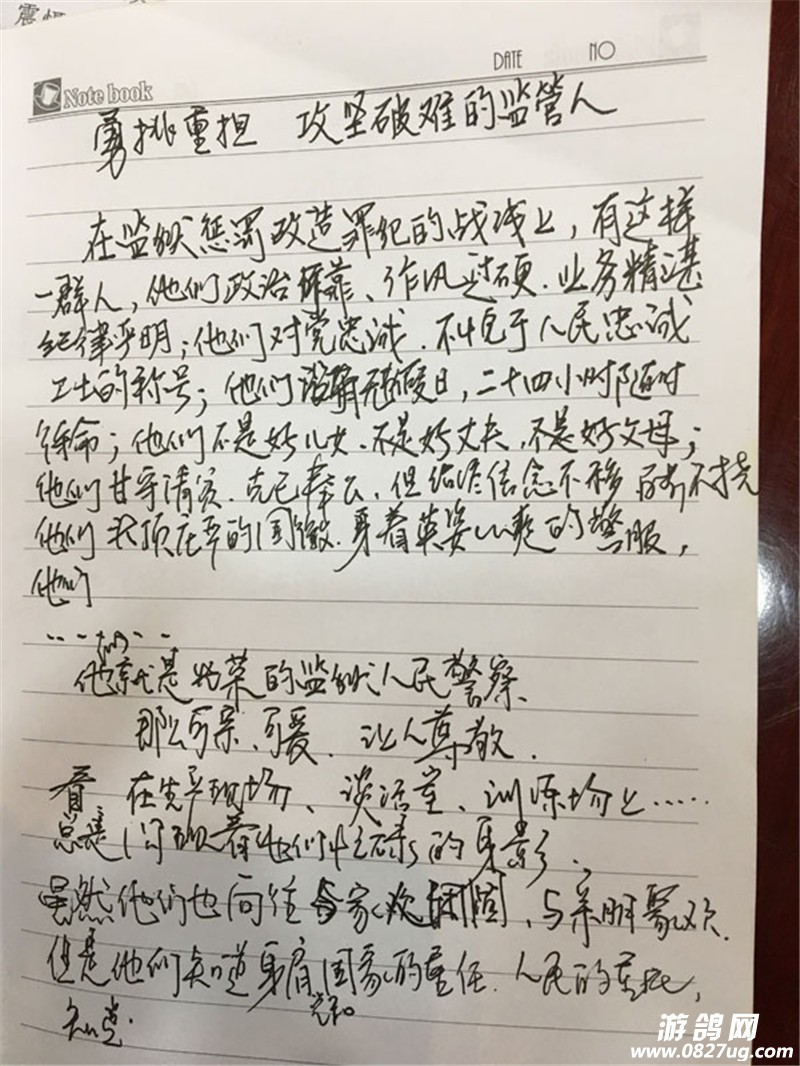 震
DATE NO
Note book
勇挑重担 攻坚破难的监管人
在监狱惩罚改造罪犯的战线上，有这样
一群人，他们政治可靠、作风过硬、业务精湛
纪律严明；他们对党忠诚、不愧于人民忠诚
卫士的称号；他们没有假日，二十四小时随时
待命；他们不是好儿女、不是好丈夫、不是好父母；
他们甘守清贫、克己奉公、但始终信念不移 不挠
他们头顶庄严的国徽、身着英姿飒爽的警服，
他们
……
他们就是光荣的监狱人民警察、
那么可亲、可爱、让人尊敬、
看、在生产现场、谈话室、训练场上……
总是闪现着他们忙碌的身影、
虽然他们也向往与家人团圆，与亲朋聚欢、
但是他们知道身肩国家的重任、人民的重托，
党和
知道
游鸽网
www.0827ug.com